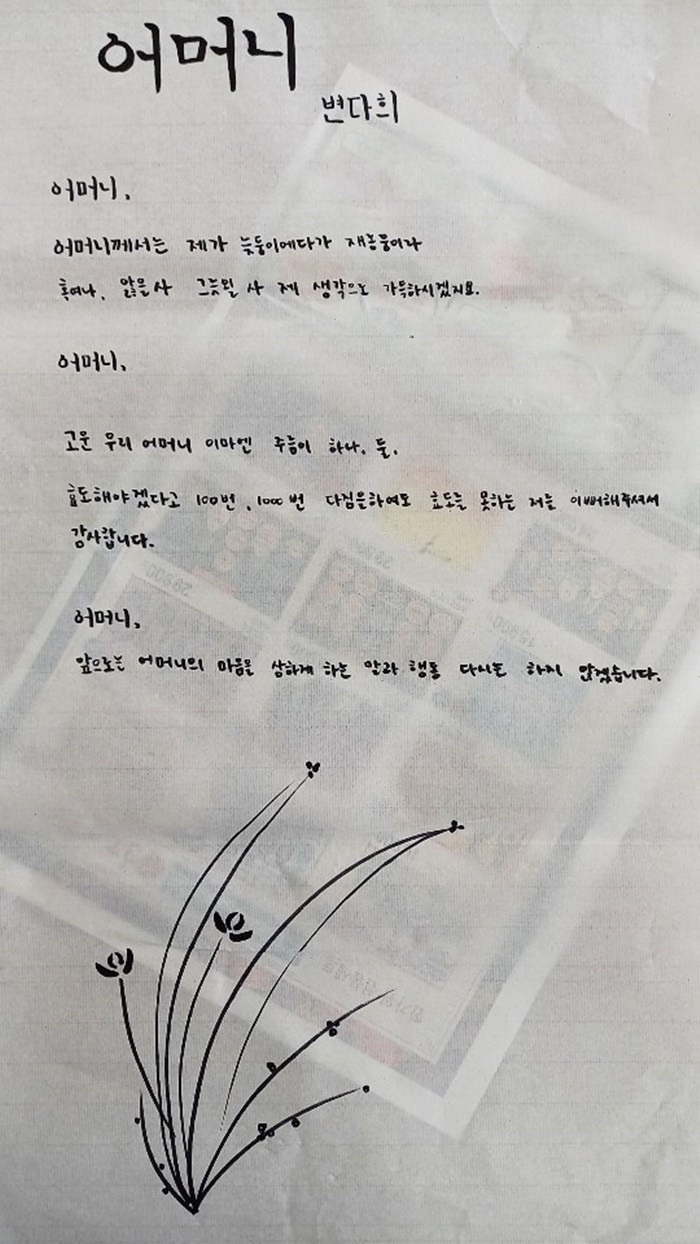 어머니
변다희
어머니,
어머니께서는 제가 늦둥이에다가 재롱둥이라
혹여나, 앓을사 그늣될 사 제 생각으로 가득하시겠지요.
어머니,
고운 우리 어머니 이마엔 주름이 하나, 둘,
효도해야겠다고 100번, 1000번 다짐을하여도 효도를 못하는 저를 이뻐해주셔서
감사합니다.
어머니,
앞으로는 어머니의 마음을 상하게 하는 말과 행동 다시는 하지 않겠습니다.